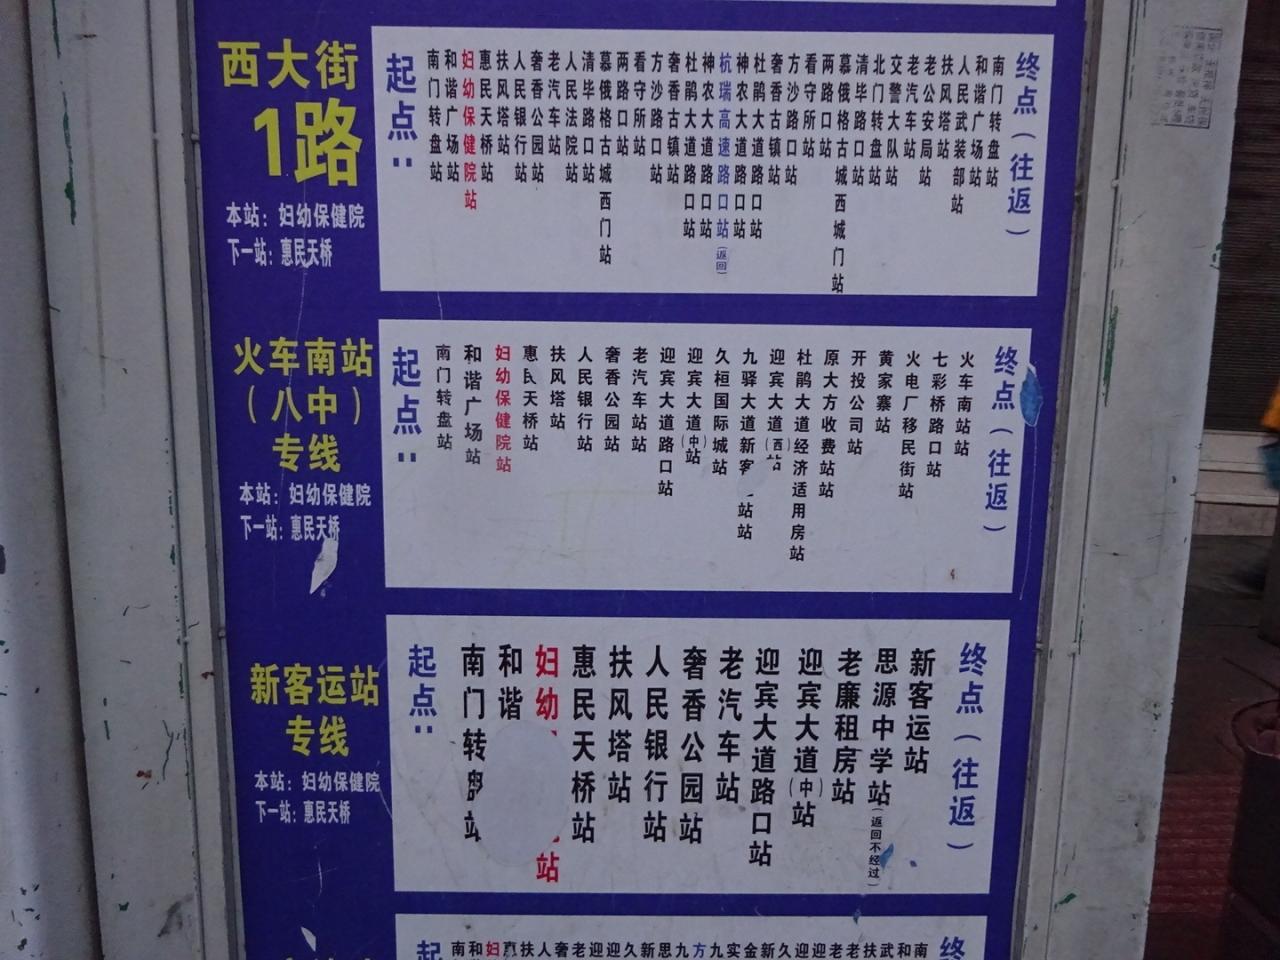 西大街
1路
本站：妇幼保健院
下一站：惠民天桥
起点：
南门转盘站
和谐广场站
妇幼保健院站
惠民天桥站
扶风塔站
人民银行站
奢香公园站
老汽车站
人民法院站
清毕路口站
慕俄格古城西门站
两路口站
看守所站
方沙路口站
奢香古镇站
杜鹃大道路口站
神农大道路口站
杭瑞高速路口站（返回）
神农大道路口站
杜鹃大道路口站
奢香古镇站
方沙路口站
看守所站
两路口站
慕俄格古城西城门站
清毕路口站
北门转盘站
交警大队站
老汽车站
老公安局站
扶风塔站
人民武装部站
和谐广场站
南门转盘站
终点（往返）
火车南站
（八中）
专线
本站：妇幼保健院
下一站：惠民天桥
起点：
南门转盘站
和谐广场站
妇幼保健院站
惠民天桥站
扶风塔站
人民银行站
奢香公园站
老汽车站站
迎宾大道路口站
迎宾大道（中）站
久桓国际城站
九驿大道新客站站
迎宾大道（西）站
杜鹃大道经济适用房站
原大方收费站站
开投公司站
黄家寨站
火电厂移民街站
七彩桥路口站
火车南站站
终点（往返）
新客运站
专线
本站：妇幼保健院
下一站：惠民天桥
起点：
南门转盘站
和谐
妇幼 站
惠民天桥站
扶风塔站
人民银行站
奢香公园站
老汽车站
迎宾大道路口站
迎宾大道（中）站
老廉租房站
思源中学站（返回不经过）
新客运站
终点（往返）
起
南和妇惠扶人奢老迎迎久新思九方九实金新久迎迎老老扶武和南
终